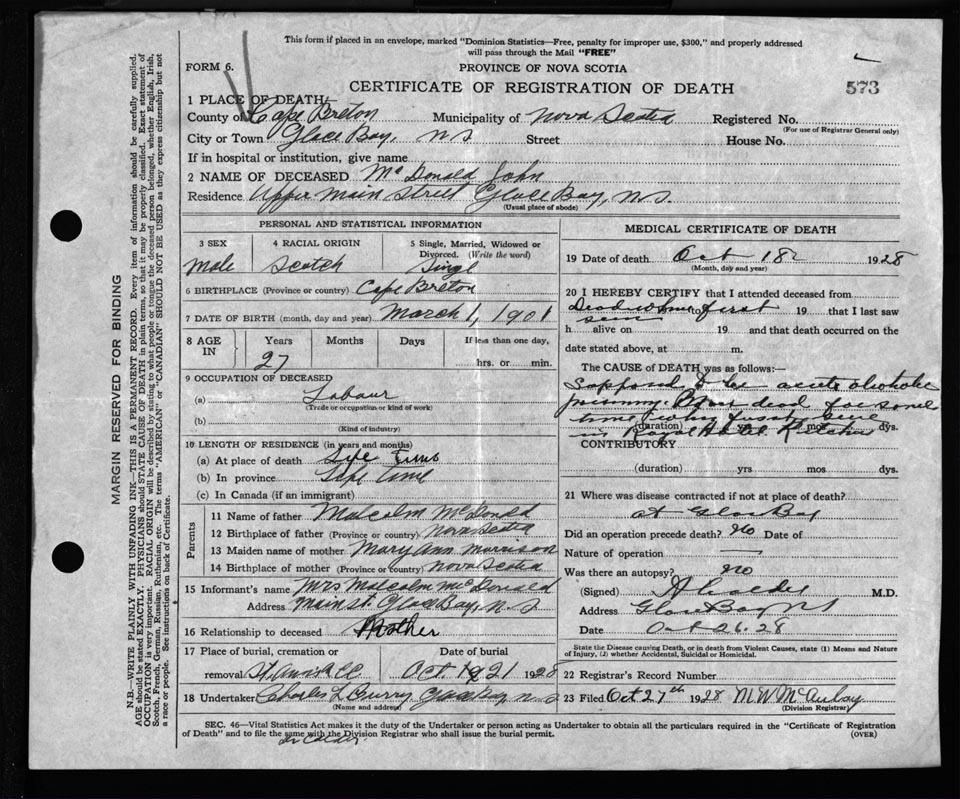 This form if placed in an envelope, marked "Dominion Statistics—Free, penalty for improper use, $300," and properly addressed
will pass through the Mail "FREE"
FORM 6.
PROVINCE OF NOVA SCOTIA
CERTIFICATE OF REGISTRATION OF DEATH
573
1 PLACE OF DEATH:
County of Cape Breton Municipality of Nova Scotia Registered No.
(For use of Registrar General only)
City or Town Glace Bay, N S Street House No.
If in hospital or institution, give name
2 NAME OF DECEASED McDonald John
Residence Upper Main Street Glace Bay, N.S.
(Usual place of abode)
PERSONAL AND STATISTICAL INFORMATION
3 SEX 4 RACIAL ORIGIN 5 Single, Married, Widowed or Divorced. (Write the word)
Male Scotch Singl
6 BIRTHPLACE (Province or country) Cape Breton
7 DATE OF BIRTH (month, day and year) March 1, 1901
8 AGE IN Years Months Days If less than one day,
27 hrs. or min.
9 OCCUPATION OF DECEASED
(a) Labour
(Trade or occupation or kind of work)
(b)
(Kind of industry)
10 LENGTH OF RESIDENCE (in years and months)
(a) At place of death Life Time
(b) In province Life time
(c) In Canada (if an immigrant)
Parents
11 Name of father Malcolm McDonald
12 Birthplace of father (Province or country) Nova Scotia
13 Maiden name of mother Mary Ann Morrison
14 Birthplace of mother (Province or country) Nova Scotia
15 Informant's name Mrs Malcolm McDonald
Address Main St. Glace Bay, N.S
16 Relationship to deceased Mother
17 Place of burial, cremation or Date of burial
removal Oct 21 1928
18 Undertaker Charles L Curry Glace Bay, N.S
(Name and address)
MEDICAL CERTIFICATE OF DEATH
19 Date of death Oct 18 1928
(Month, day and year)
20 I HEREBY CERTIFY that I attended deceased from
Dead when to first 19 that I last saw
seen
h alive on 19 and that death occurred on the
date stated above, at m.
The CAUSE of DEATH was as follows:
Supposed to be acute alcoholic
dead for some
time
(duration) yrs mos dys.
in Royal Hotel Kitchen
CONTRIBUTORY
(duration) yrs mos dys.
21 Where was disease contracted if not at place of death?
at Glace Bay
Did an operation precede death? No Date of
Nature of operation
Was there an autopsy? No
(Signed) M.D.
Address Glace Bay N S
Date Oct 26. 28
State the Disease causing Death, or in death from Violent Causes, state (1) Means and Nature
of Injury, (2) whether Accidental, Suicidal or Homicidal.
22 Registrar's Record Number
23 Filed Oct 27th 1928 M W McAulay
(Division Registrar)
SEC. 46—Vital Statistics Act makes it the duty of the Undertaker or person acting as Undertaker to obtain all the particulars required in the "Certificate of Registration
of Death" and to file the same with the Division Registrar who shall issue the burial permit. (OVER)
Dr Calder
MARGIN RESERVED FOR BINDING
N.B.—WRITE PLAINLY WITH UNFADING INK—THIS IS A PERMANENT RECORD. Every item of information should be carefully supplied.
AGE should be stated EXACTLY. PHYSICIANS should STATE CAUSE OF DEATH in plain terms, so that it may be properly classified. Exact statement of
OCCUPATION is very important. RACIAL ORIGIN will be described by stating to what people or tongue the deceased person belonged, whether English, Irish,
Scotch, French, German, Russian, Ruthenian, etc. The terms "AMERICAN" or "CANADIAN" SHOULD NOT BE USED as they express citizenship but not
a race or people. See instructions on back of Certificate.